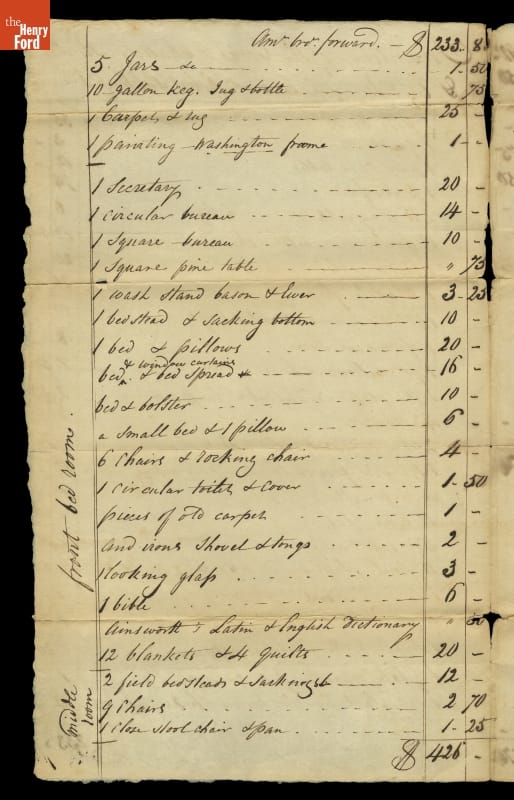 the
Henry
Ford
Amt. bro.t forward. — $ 233. 8
5 Jars &c 1. 50
10 gallon keg. Jug & bottle 75
1 Carpet & rug 25 -
1 painting Washington frame 1 -
1 Secretary 20 -
1 circular bureau 14 -
1 Square bureau 10 -
1 Square pine table " 75
1 wash stand bason & Ewer 3. 25
1 bedstead & sacking bottom 10 -
1 bed & pillows 20 -
& window curtains
bed & bed spread 16 -
bed & bolster 10 -
a small bed & 1 pillow 6 -
6 Chairs & rocking chair 4 -
1 circular toilet & cover 1. 50
pieces of old carpet 1 -
And irons Shovel & tongs 2 -
1 looking glass 3 -
1 bible 6 -
front bed room.
Ainsworth's Latin & English Dictionary " 50
12 blankets & 4 quilts 20 -
2 field bedsteads & sackings 12 -
9 Chairs 2 70
1 Close stool chair & pan 1. 25
middle
room
$ 426 -